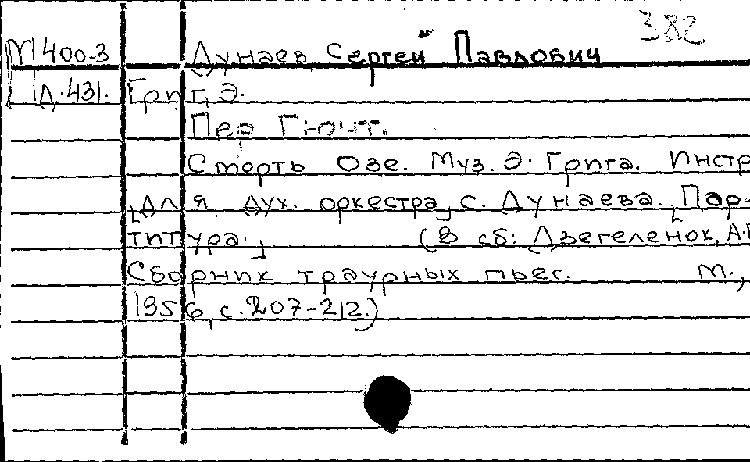 382
М400-3 Дунаев, Сергей Павлович
Д.431. Григ, Э.
Пер Гюнт.
Смерть Озе. Муз. Э. Грига. Инстр
для дух. оркестра, с. Дунаева. Пар-
титура. (В сб: Дзегеленок, А.
Сборник траурных пьес. М.,
1956, с. 207-212.)